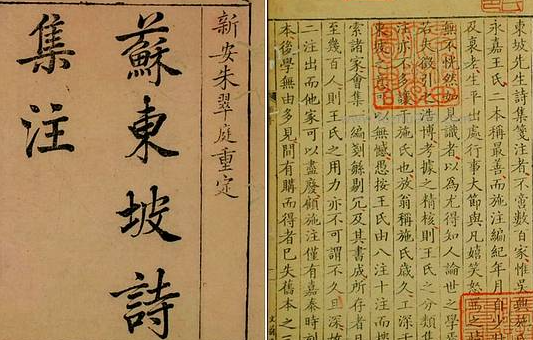 新安朱翠庭重定
蘇東坡詩
集注
東坡先生詩集箋注者不啻數百家惟吳
永嘉王氏二本稱最善而施注編紀年月自少
及衰老生平出處行事大節與凡嬉笑怒
無不恍然如見識者以為尤得知人論世之學
若夫徵引之浩博考據之精核則王氏之分類集
法亦不多讓于施氏也放翁稱施氏歲久工深于
東坡之意可以無憾愚按王氏由八注十注而搜
索諸家會集編剗餘剔冗及其書成所存者
至幾百人則王氏之用力亦不可謂不久且深
二注出而他家可以盡廢顧施注僅有嘉泰時刻
本後學無由多見間有購而得者已失舊本之